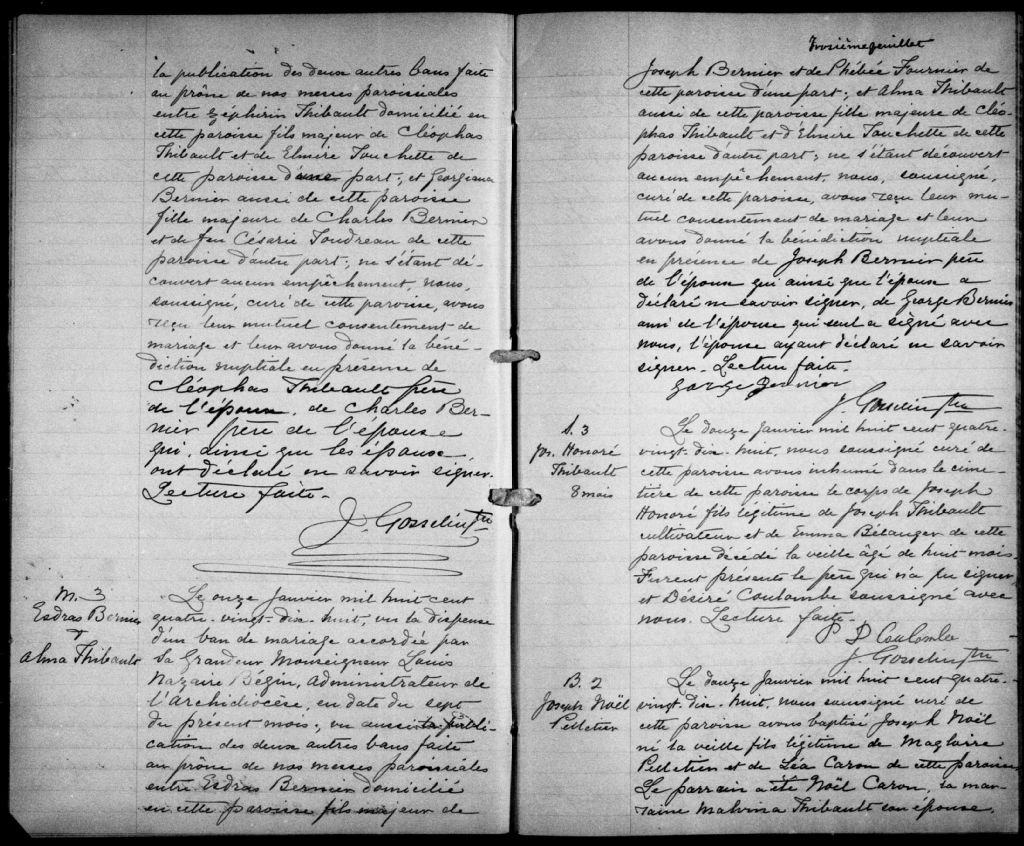 la publication des deux autres bans faite
au prône de nos messes paroissiales
entre Zéphirin Thibault domicilié en
cette paroisse fils majeur de Cléophas
Thibault et de Elmire Touchette de
cette paroisse d'une part; et Georgiana
Bernier aussi de cette paroisse
fille majeure de Charles Bernier
et de feu Césarie Toudreau de cette
paroisse d'autre part; ne s'étant dé-
couvert aucun empêchement, nous,
soussigné, curé de cette paroisse, avons
reçu leur mutuel consentement de
mariage et leur avons donné la béné-
diction nuptiale en présence de
Cléophas Thibault père
de l'époux, de Charles Ber-
nier père de l'épouse
qui, ainsi que les épouse,
ont déclaré ne savoir signer.
Lecture faite.
J. Gosselin Ptre
M. 3
Esdras Bernier
+
Alma Thibault
Le onze Janvier mil huit cent
quatre-vingt-dix-huit, vu la dispense
d'un ban de mariage accordée par
Sa Grandeur Monseigneur Louis
Nazaire Bégin, Administrateur de
l'Archidiocèse, en date du sept
du présent mois; vu aussi la publi-
cation des deux autres bans faite
au prône de nos messes paroissiales
entre Esdras Bernier domicilié
en cette paroisse fils majeur de
Troisième feuillet
Joseph Bernier et de Phébée Fournier de
cette paroisse d'une part; et Alma Thibault
aussi de cette paroisse fille majeure de Cléo-
phas Thibault et d'Elmire Touchette de cette
paroisse d'autre part; ne s'étant découvert
aucun empêchement, nous, soussigné,
curé de cette paroisse, avons reçu leur mu-
tuel consentement de mariage et leur
avons donné la bénédiction nuptiale
en présence de Joseph Bernier père
de l'époux qui ainsi que l'époux a
déclaré ne savoir signer, de George Bernier
ami de l'épouse qui seul a signé avec
nous, l'épouse ayant déclaré ne savoir
signer. Lecture faite.
George Bernier
J. Gosselin Ptre
S. 3
Jos. Honoré
Thibault
8 mois
Le douze Janvier mil huit cent quatre-
vingt-dix-huit, nous soussigné curé de
cette paroisse avons inhumé dans le cime-
tière de cette paroisse le corps de Joseph
Honoré fils légitime de Joseph Thibault
cultivateur et de Emma Bélanger de cette
paroisse décédé la veille âgé de huit mois.
Furent présents le père qui n'a pu signer
et Désiré Coulombe soussigné avec
nous. Lecture faite.
D Coulombe
J. Gosselin Ptre
B. 2
Joseph Noël
Pelletier
Le douze Janvier mil huit cent quatre-
vingt-dix-huit, nous soussigné curé de
cette paroisse avons baptisé Joseph Noël
né la veille fils légitime de Magloire
Pelletier et de Léa Caron de cette paroisse.
Le parrain a été Noël Caron, la mar-
raine Malvina Thibault son épouse,